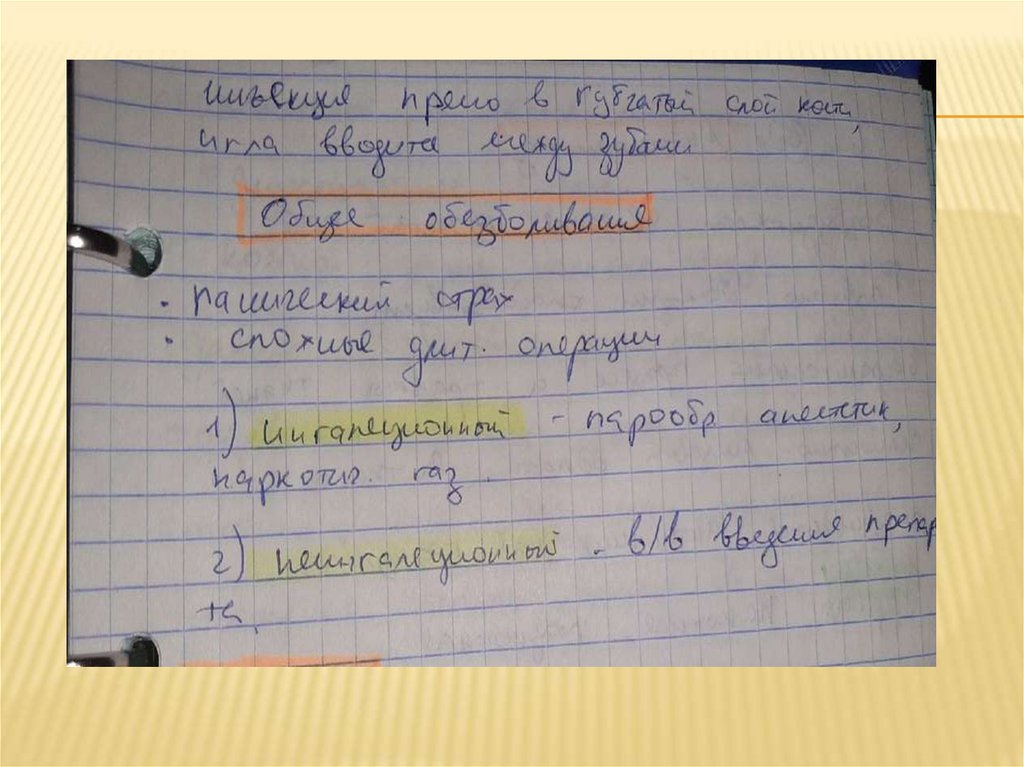 инъекция прямо в губчатый слой кости,
игла вводится между зубами
Общее обезболивание
• панический страх
• сложные длит. операции
1) ингаляционный - парообр анестетик,
наркотич. газ.
2) неингаляционный - в/в введения препар
та.